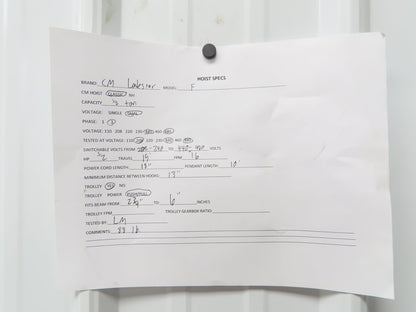 HOIST SPECS
BRAND: CM Lodestar MODEL: F
CM HOIST CLASSIC NH
CAPACITY ½ ton
VOLTAGE: SINGLE DUAL
PHASE: 1 3
VOLTAGE: 110 208 220 230 460
TESTED AT VOLTAGE: 110 208 220 230 460
SWITCHABLE VOLTS FROM 240 TO VOLTS
HP ½ TRAVEL 15' FPM 16
POWER CORD LENGTH: PENDANT LENGTH: 10'
MINIMUM DISTANCE BETWEEN HOOKS: 13"
TROLLEY YES NO
TROLLEY POWER PUSH/PULL
FITS BEAM FROM TO 6" INCHES
TROLLEY FPM TROLLEY GEARBOX RATIO
TESTED BY: LM
COMMENTS: 88 lb